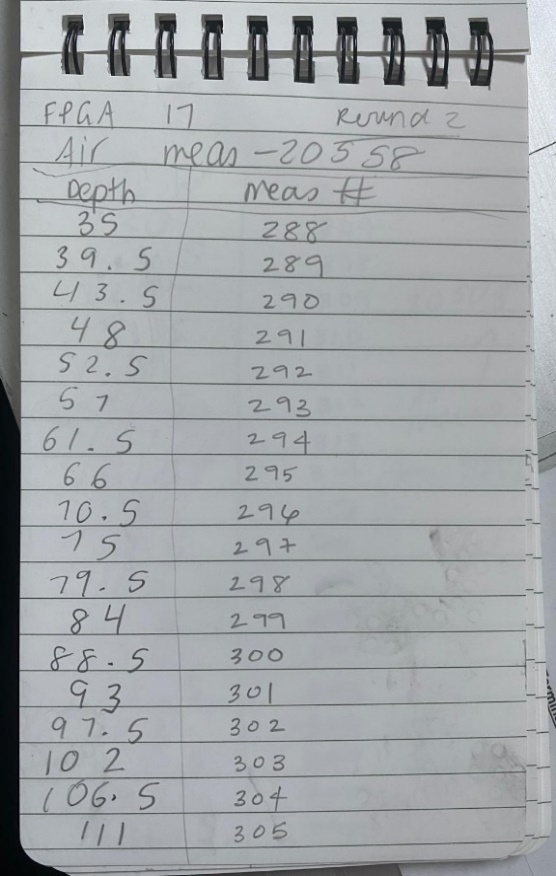 FPGA 17 Round 2
Air meas - 20558
Depth meas #
35 288
39.5 289
43.5 290
48 291
52.5 292
57 293
61.5 294
66 295
70.5 296
75 297
79.5 298
84 299
88.5 300
93 301
97.5 302
102 303
106.5 304
111 305